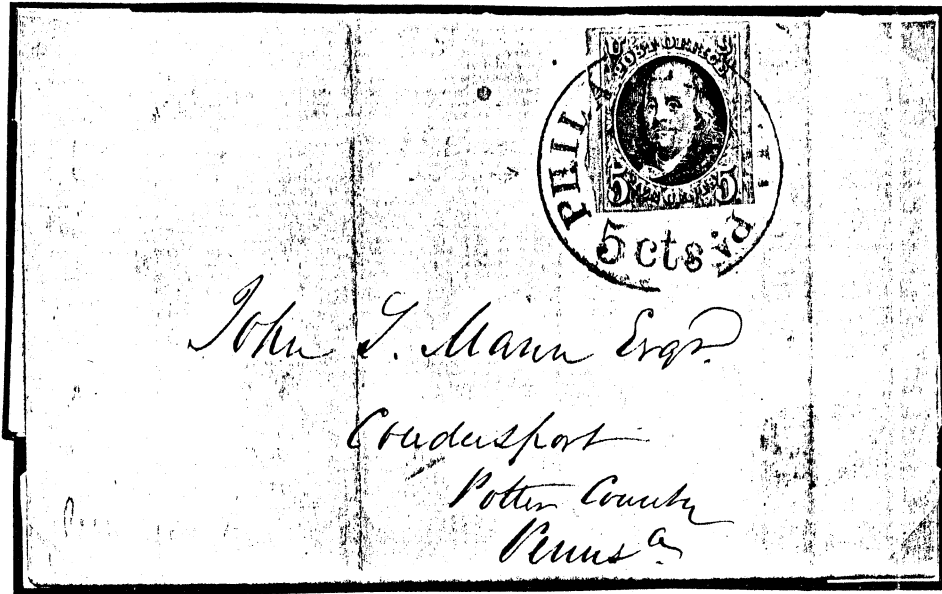 U S
POST OFFICE
5 5
PHILA
5 cts
John S. Mann Esqr.
Coudersport
Potter County
Penns a